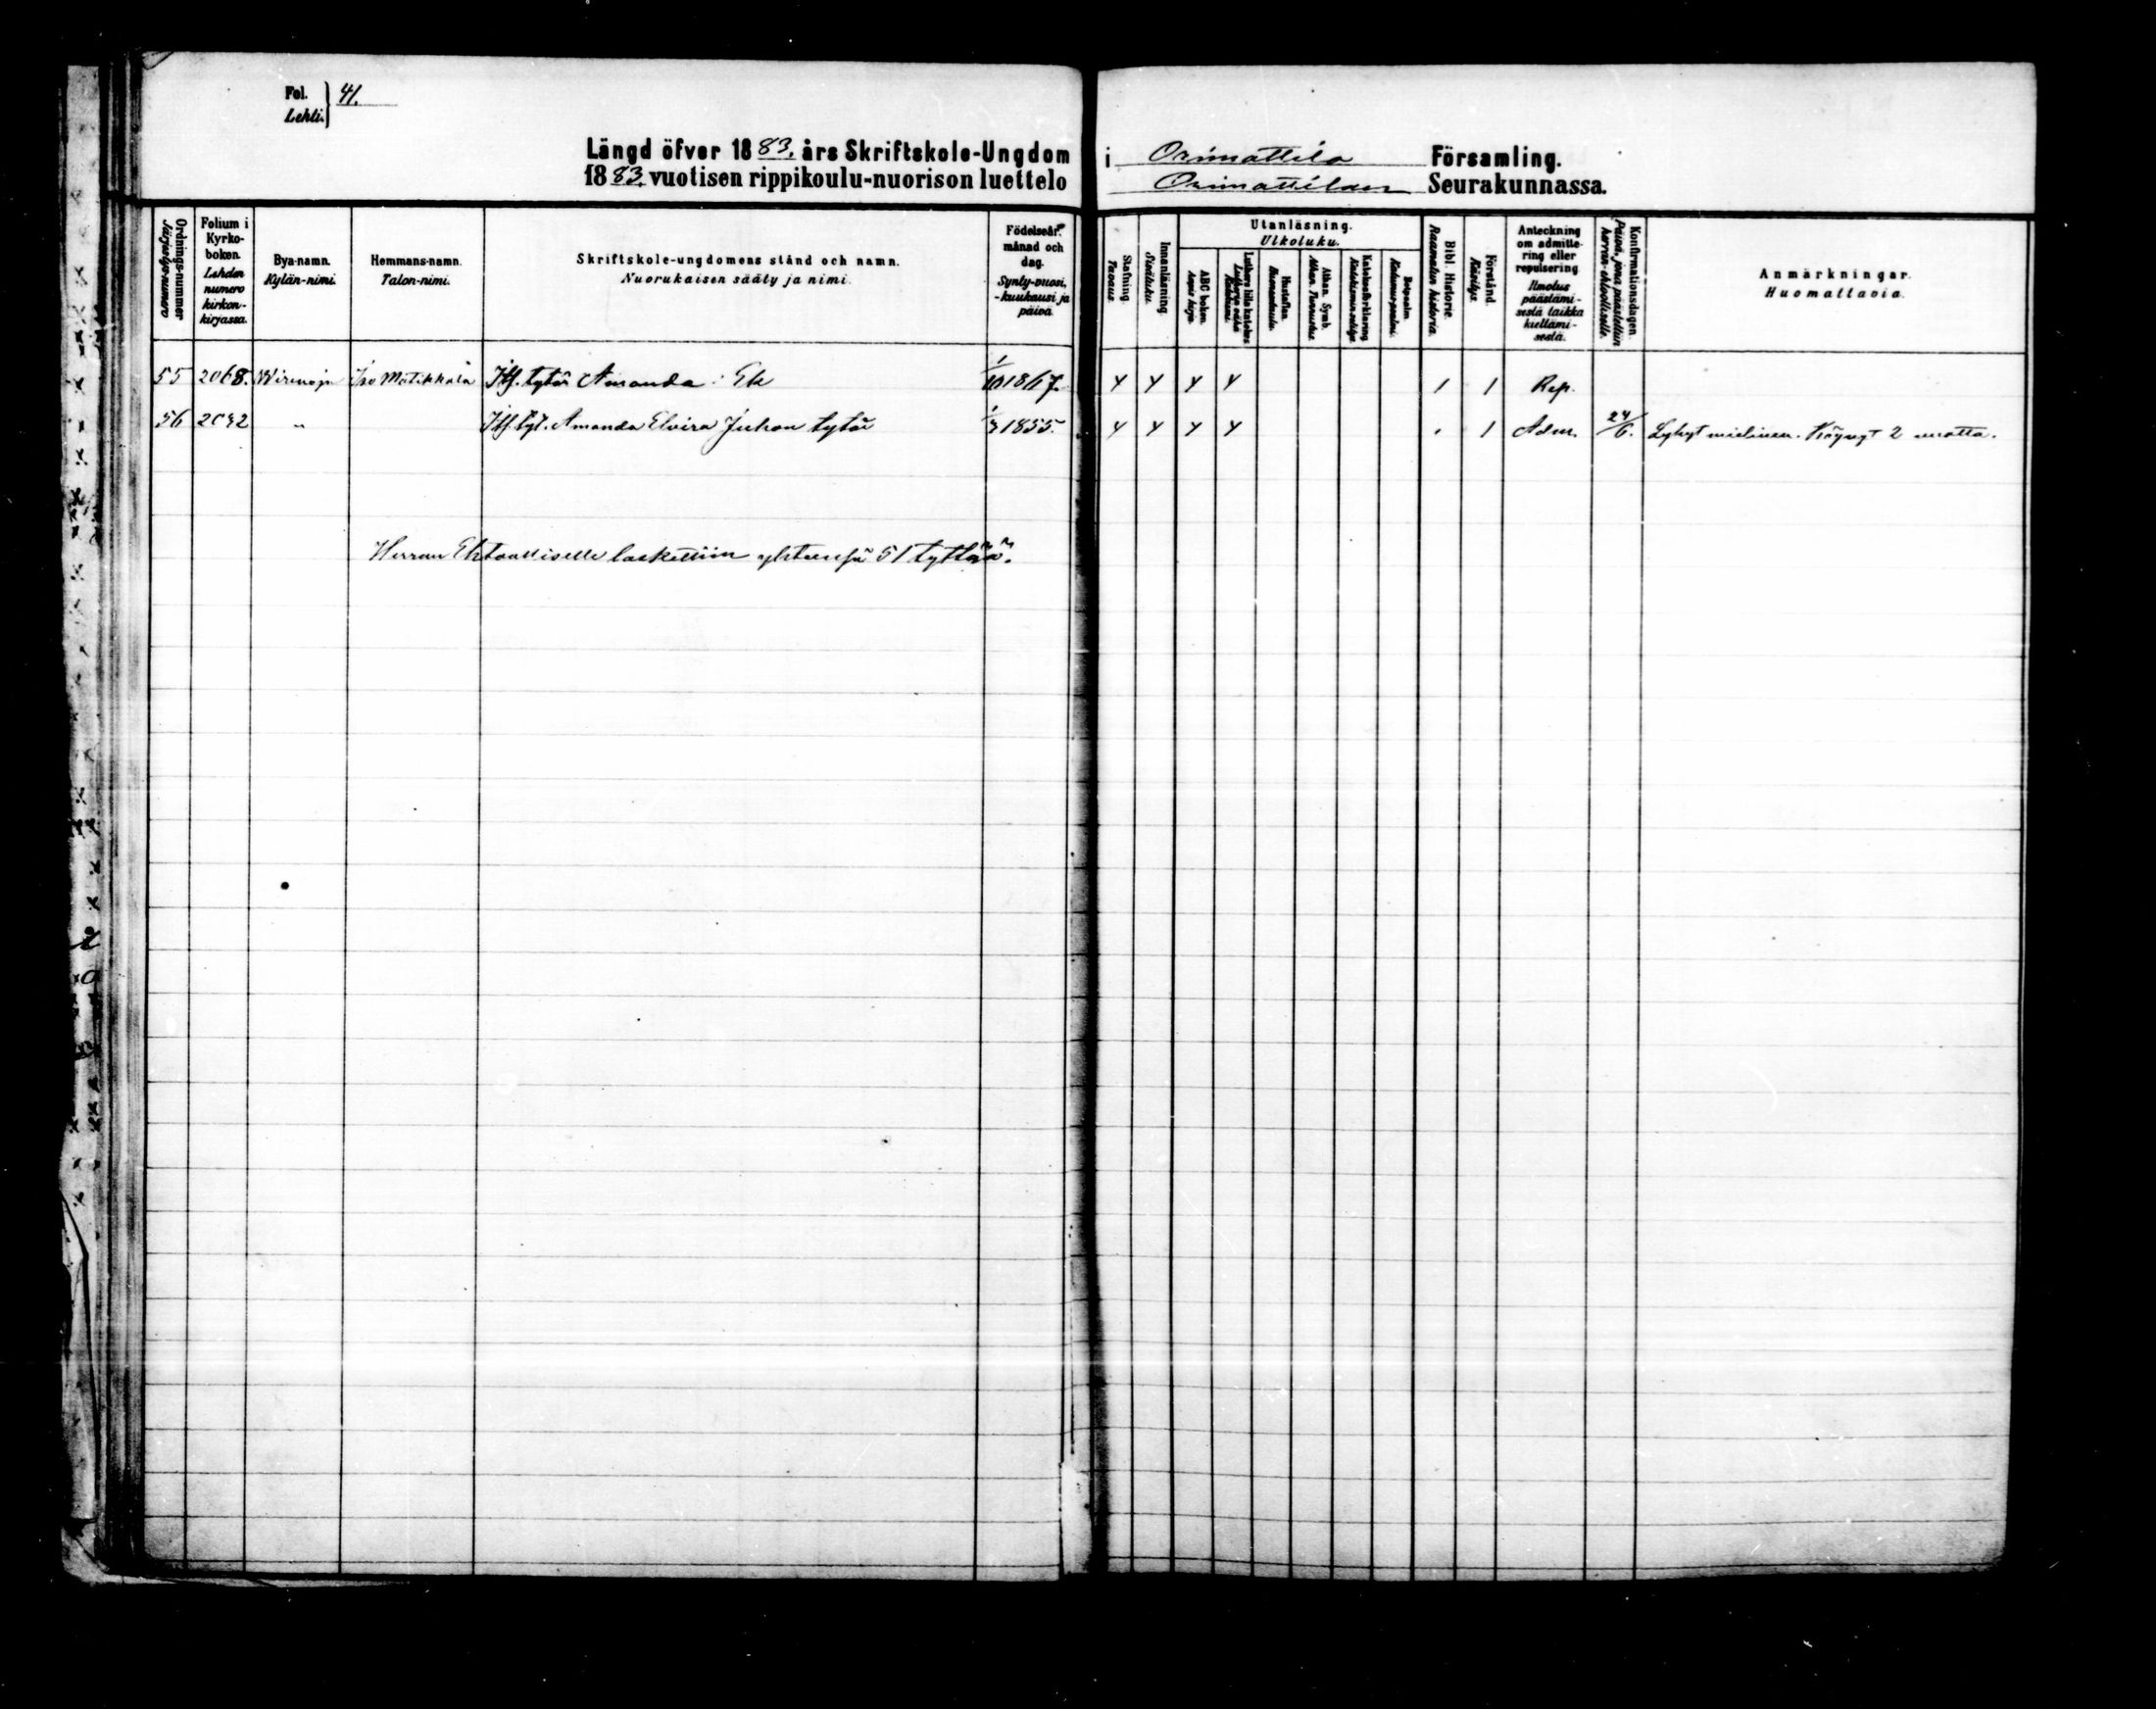 Fol. 41.
Lehti.
Längd öfver 1883. års Skriftskole-Ungdom i Orimattila Församling.
1883. vuotisen rippikoulu-nuorison luettelo Orimattilan Seurakunnassa.
Ordnings-nummer
Järjestys-numero
Folium i Kyrko-boken.
Lehden numero kirkon-kirjassa.
Bya-namn.
Kylän-nimi.
Hemmans-namn.
Talon-nimi.
Skriftskole-ungdomens stånd och namn.
Nuorukaisen sääty ja nimi.
Födelseår, månad och dag.
Synty-vuosi, -kuukausi ja päivä
Stafning.
Tavaus.
Innanläsning.
Sisäluku.
Utanläsning.
Ulkoluku.
ABC boken.
Aapis kirja.
Luthers lilla katekes
Hustaflan.
Huoneentaulu.
Athan. Symb.
Athan. Tunnustus.
Katekesförklaring
Botpsalm.
Katumus-psalmi.
Bibl. Historie.
Raamatun historia.
Förstånd.
Käsitys.
Anteckning om admittering eller repulsering
Ilmotus päästämisestä taikka kieltämisestä.
Konfirmationsdagen.
Päivä, jona päästettiin herran-ehtoolliselle.
Anmärkningar.
Huomattavia.
55 2068. Wirenoja Iso Matikkala Itf. tytär Amanda Ek 1/10 1867. Y Y Y Y 1 1 Rep.
56 2092 " Itf. tyt. Amanda Elvira Juhon tytär 1855. Y Y Y Y 1 Adm. 24/6. Lyhyt mielinen. Käynyt 2 vuotta.
Herran Ehtoolliselle laskettiin yhteensä 51 tyttöä.